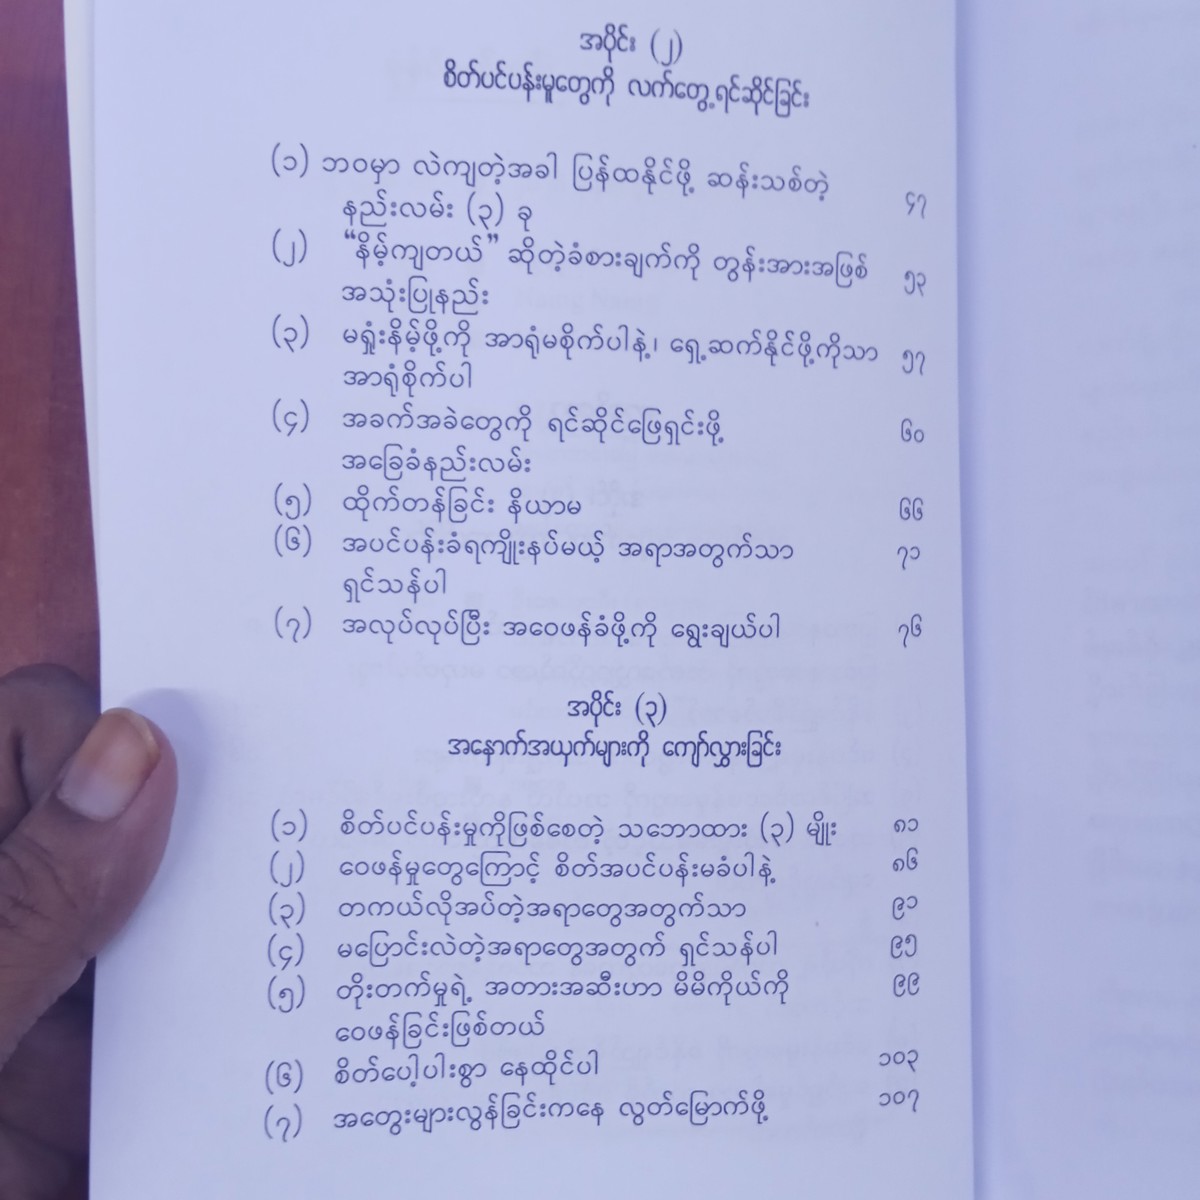 အပိုင်း (၂)
စိတ်ပင်ပန်းမှုတွေကို လက်တွေ့ရင်ဆိုင်ခြင်း
(၁) ဘဝမှာ လဲကျတဲ့အခါ ပြန်ထနိုင်ဖို့ ဆန်းသစ်တဲ့ ၄၇
နည်းလမ်း (၃) ခု
(၂) “နိမ့်ကျတယ်” ဆိုတဲ့ခံစားချက်ကို တွန်းအားအဖြစ် ၅၃
အသုံးပြုနည်း
(၃) မရှုံးနိမ့်ဖို့ကို အာရုံမစိုက်ပါနဲ့၊ ရှေ့ဆက်နိုင်ဖို့ကိုသာ ၅၇
အာရုံစိုက်ပါ
(၄) အခက်အခဲတွေကို ရင်ဆိုင်ဖြေရှင်းဖို့ ၆၀
အခြေခံနည်းလမ်း
(၅) ထိုက်တန်ခြင်း နိယာမ ၆၆
(၆) အပင်ပန်းခံရကျိုးနပ်မယ့် အရာအတွက်သာ ၇၁
ရှင်သန်ပါ
(၇) အလုပ်လုပ်ပြီး အဝေဖန်ခံဖို့ကို ရွေးချယ်ပါ ၇၆
အပိုင်း (၃)
အနောက်အယှက်များကို ကျော်လွှားခြင်း
(၁) စိတ်ပင်ပန်းမှုကိုဖြစ်စေတဲ့ သဘောထား (၃) မျိုး ၈၁
(၂) ဝေဖန်မှုတွေကြောင့် စိတ်အပင်ပန်းမခံပါနဲ့ ၈၆
(၃) တကယ်လိုအပ်တဲ့အရာတွေအတွက်သာ ၉၁
(၄) မပြောင်းလဲတဲ့အရာတွေအတွက် ရှင်သန်ပါ ၉၅
(၅) တိုးတက်မှုရဲ့ အတားအဆီးဟာ မိမိကိုယ်ကို ၉၉
ဝေဖန်ခြင်းဖြစ်တယ်
(၆) စိတ်ပေါ့ပါးစွာ နေထိုင်ပါ ၁၀၃
(၇) အတွေးများလွန်ခြင်းကနေ လွတ်မြောက်ဖို့ ၁၀၇